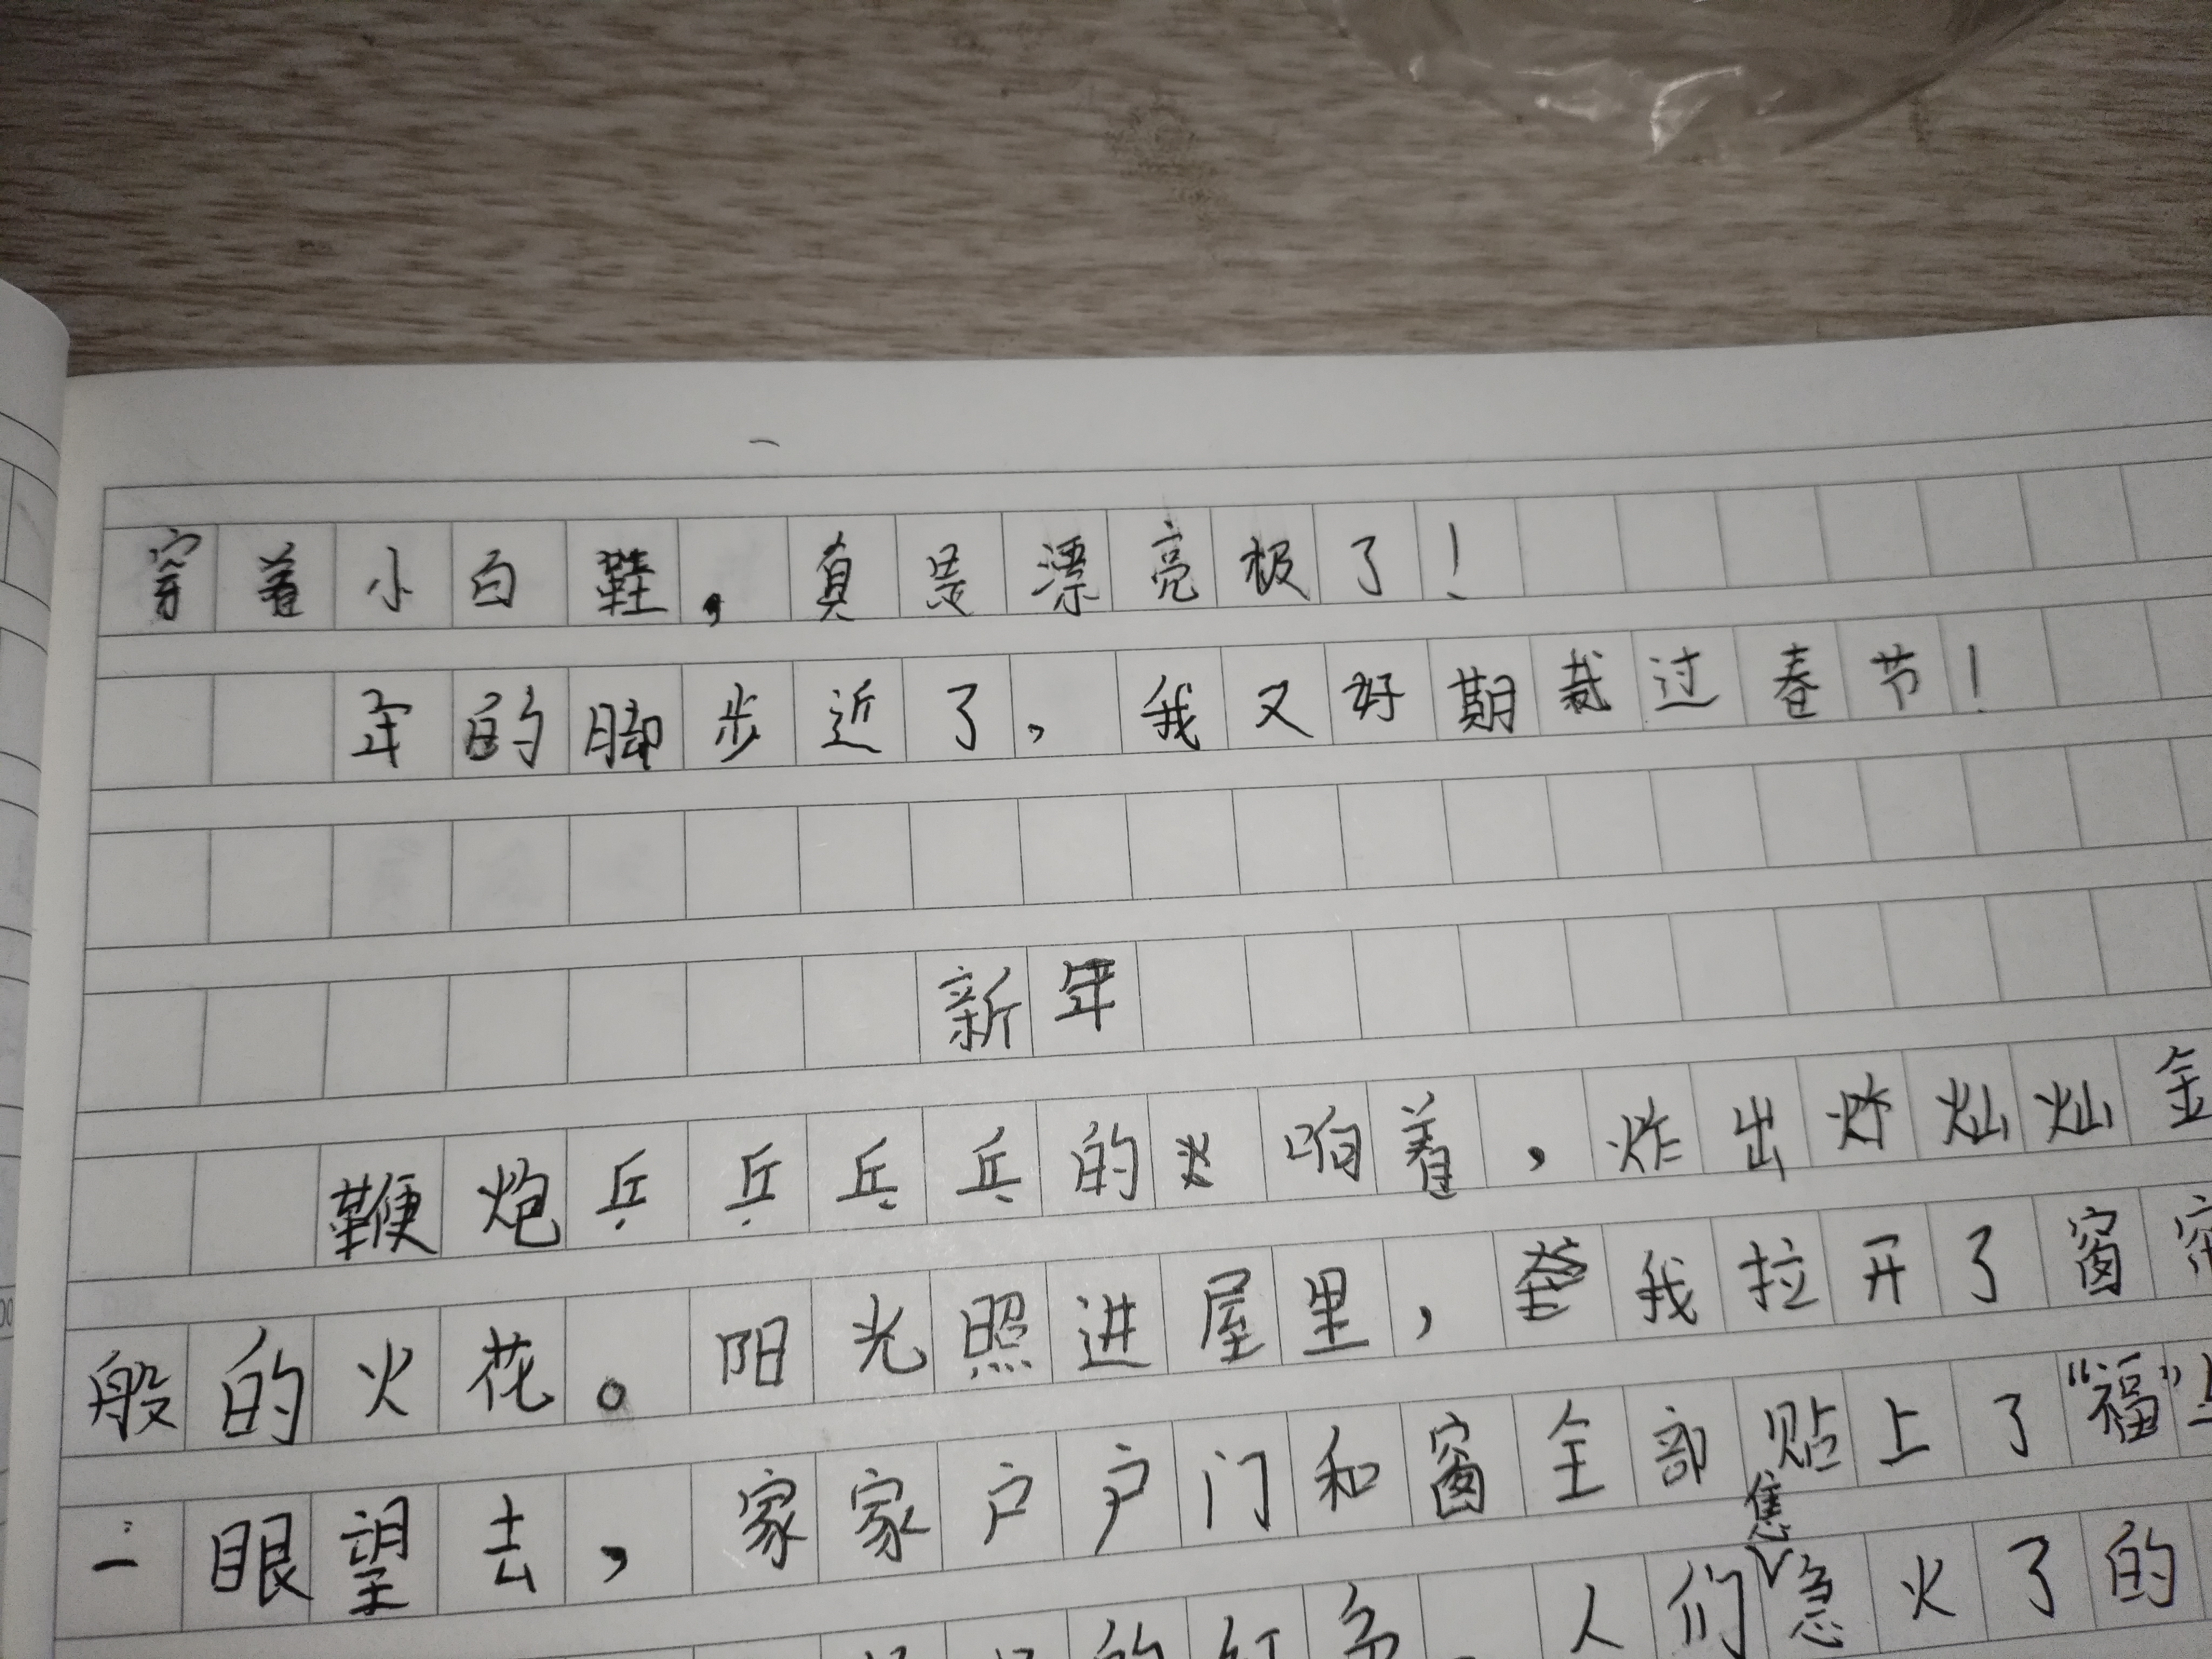 穿着小白鞋，真是漂亮极了！
年的脚步近了，我又好期过春节！
新年
鞭炮乒乒乓乓的响着，炸出灿灿金
般的火花。阳光照进屋里，我拉开了窗帘
一眼望去，家家户户门和窗全部贴上了“福”
的红色 人们焦急火了的